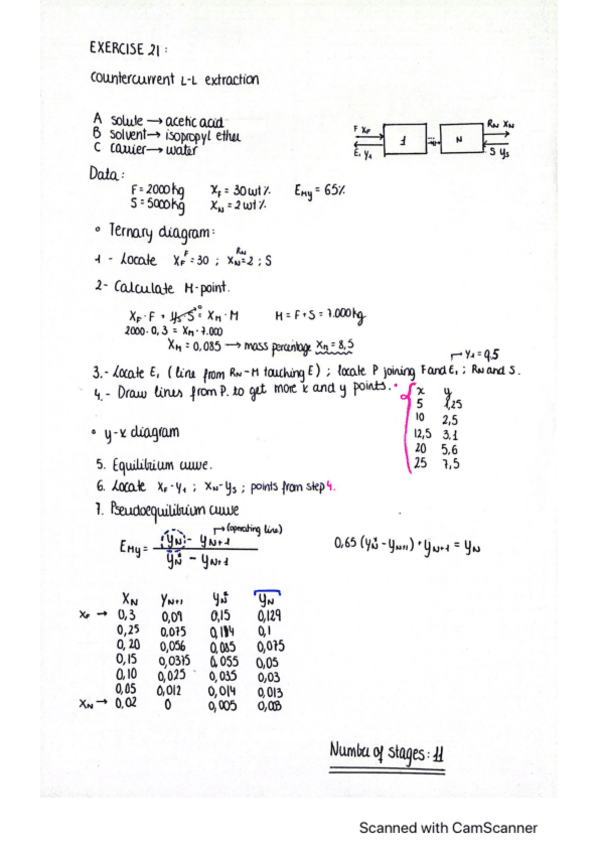 EXERCISE 21:
countercurrent L-L extraction
A solute → acetic acid
B solvent → isopropyl ether
C carrier → water
F XF
E1 Y1
1
N
RN XN
S YS
Data:
F = 2000 kg XF = 30 wt % EMy = 65%
S = 5000 kg XN = 2 wt %
• Ternary diagram:
1 - Locate XF^F = 30 ; XN^RN = 2 ; S
2 - Calculate M-point.
XF · F + yS · S^0 = XM · M M = F + S = 7.000 kg
2000 · 0,3 = XM · 7.000
XM = 0,085 → mass percentage XM = 8,5
→ Y1 = 9,5
3.- Locate E1 (line from RN-M touching E) ; locate P joining F and E1 ; RN and S.
4.- Draw lines from P. to get more x and y points. •
x y
5 1,25
10 2,5
12,5 3,1
20 5,6
25 7,5
• y-x diagram
5. Equilibrium curve.
6. Locate XF-Y1 ; XN-YS ; points from step 4.
7. Pseudoequilibrium curve
→ (operating line)
EMy = (yN - yN+1) / (yN* - yN+1)
0,65 (yN* - yN+1) + yN+1 = yN
XN YN+1 YN* YN
XF → 0,3 0,09 0,15 0,129
0,25 0,075 0,114 0,1
0,20 0,056 0,085 0,075
0,15 0,0375 0,055 0,05
0,10 0,025 0,035 0,03
0,05 0,012 0,014 0,013
XN → 0,02 0 0,005
Number of stages: 11
Scanned with CamScanner